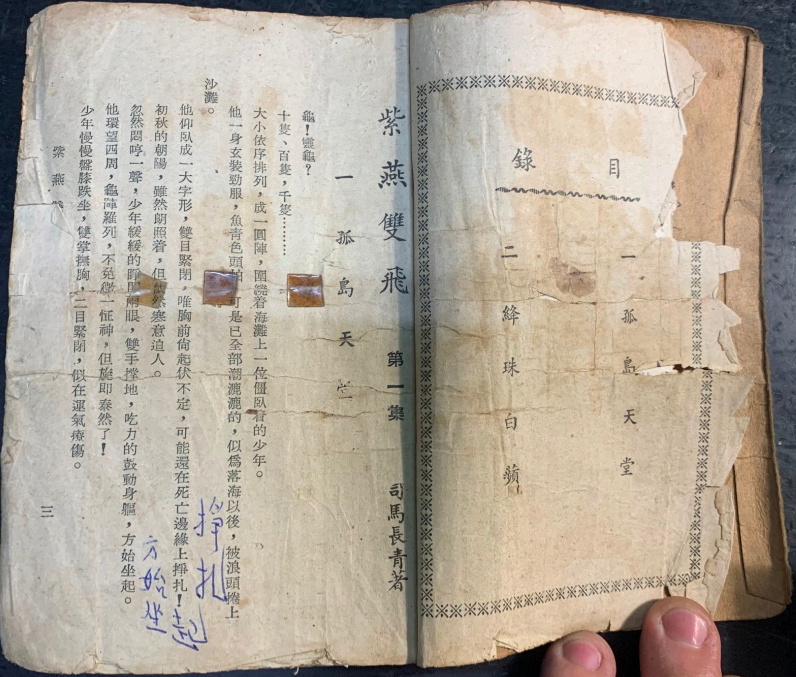 目錄
一 孤島天堂
二 絳珠白蘋
紫燕雙飛 第一集 司馬長青著
一 孤島天
龜！靈龜？
十隻、百隻，千隻………
大小依序排列，成一圓陣，圍繞着海灘上一位僵臥着的少年。
他一身玄裝勁服，魚青色頭 可是已全部潮漉漉的，似爲落海以後，被浪頭捲上
沙灘。
他仰臥成一大字形，雙目緊閉。唯胸前尙起伏不定，可能還在死亡邊緣上掙扎！
初秋的朝陽，雖然朗照着，但 然寒意迫人。
忽然悶哼一聲，少年緩緩的睜 兩眼，雙手撑地，吃力的鼓動身軀，方始坐起。
他環望四周，龜陣羅列，不免微一怔神，但旋即泰然了！
少年慢慢盤膝趺坐，雙掌撫胸，二目緊閉，似在運氣療傷。
紫燕
三
掙扎
方始坐起